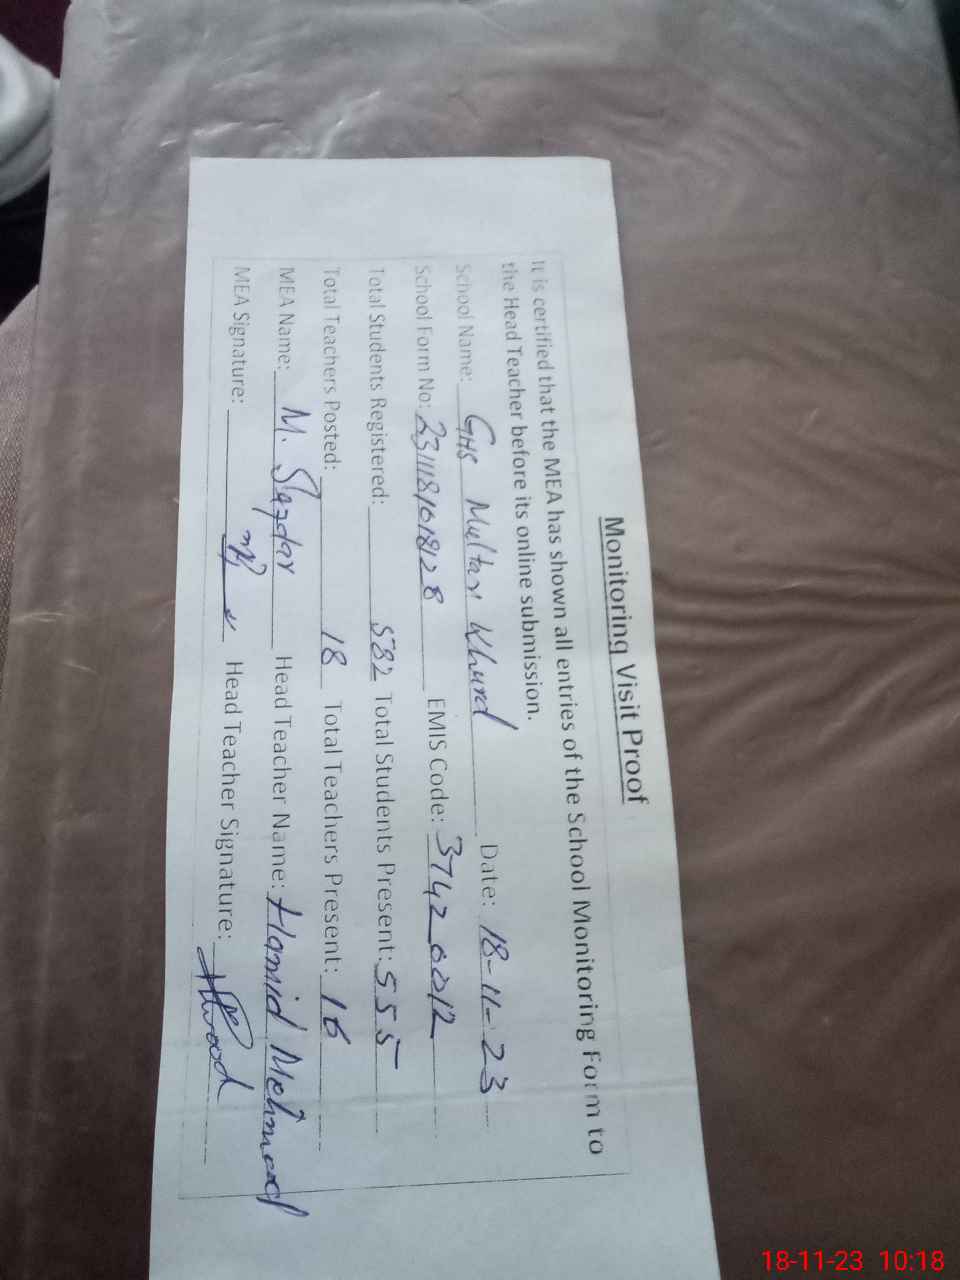 Monitoring Visit Proof
It is certified that the MEA has shown all entries of the School Monitoring Form to
the Head Teacher before its online submission.
School Name: GHS Multan Khurd Date: 18-11-23
School Form No: 231118101812 8 EMIS Code: 37420012
Total Students Registered: 582 Total Students Present: 555
Total Teachers Posted: 18 Total Teachers Present: 16
MEA Name: M. Head Teacher Name: Hamid Mehmood
MEA Signature: Head Teacher Signature:
18-11-23 10:18